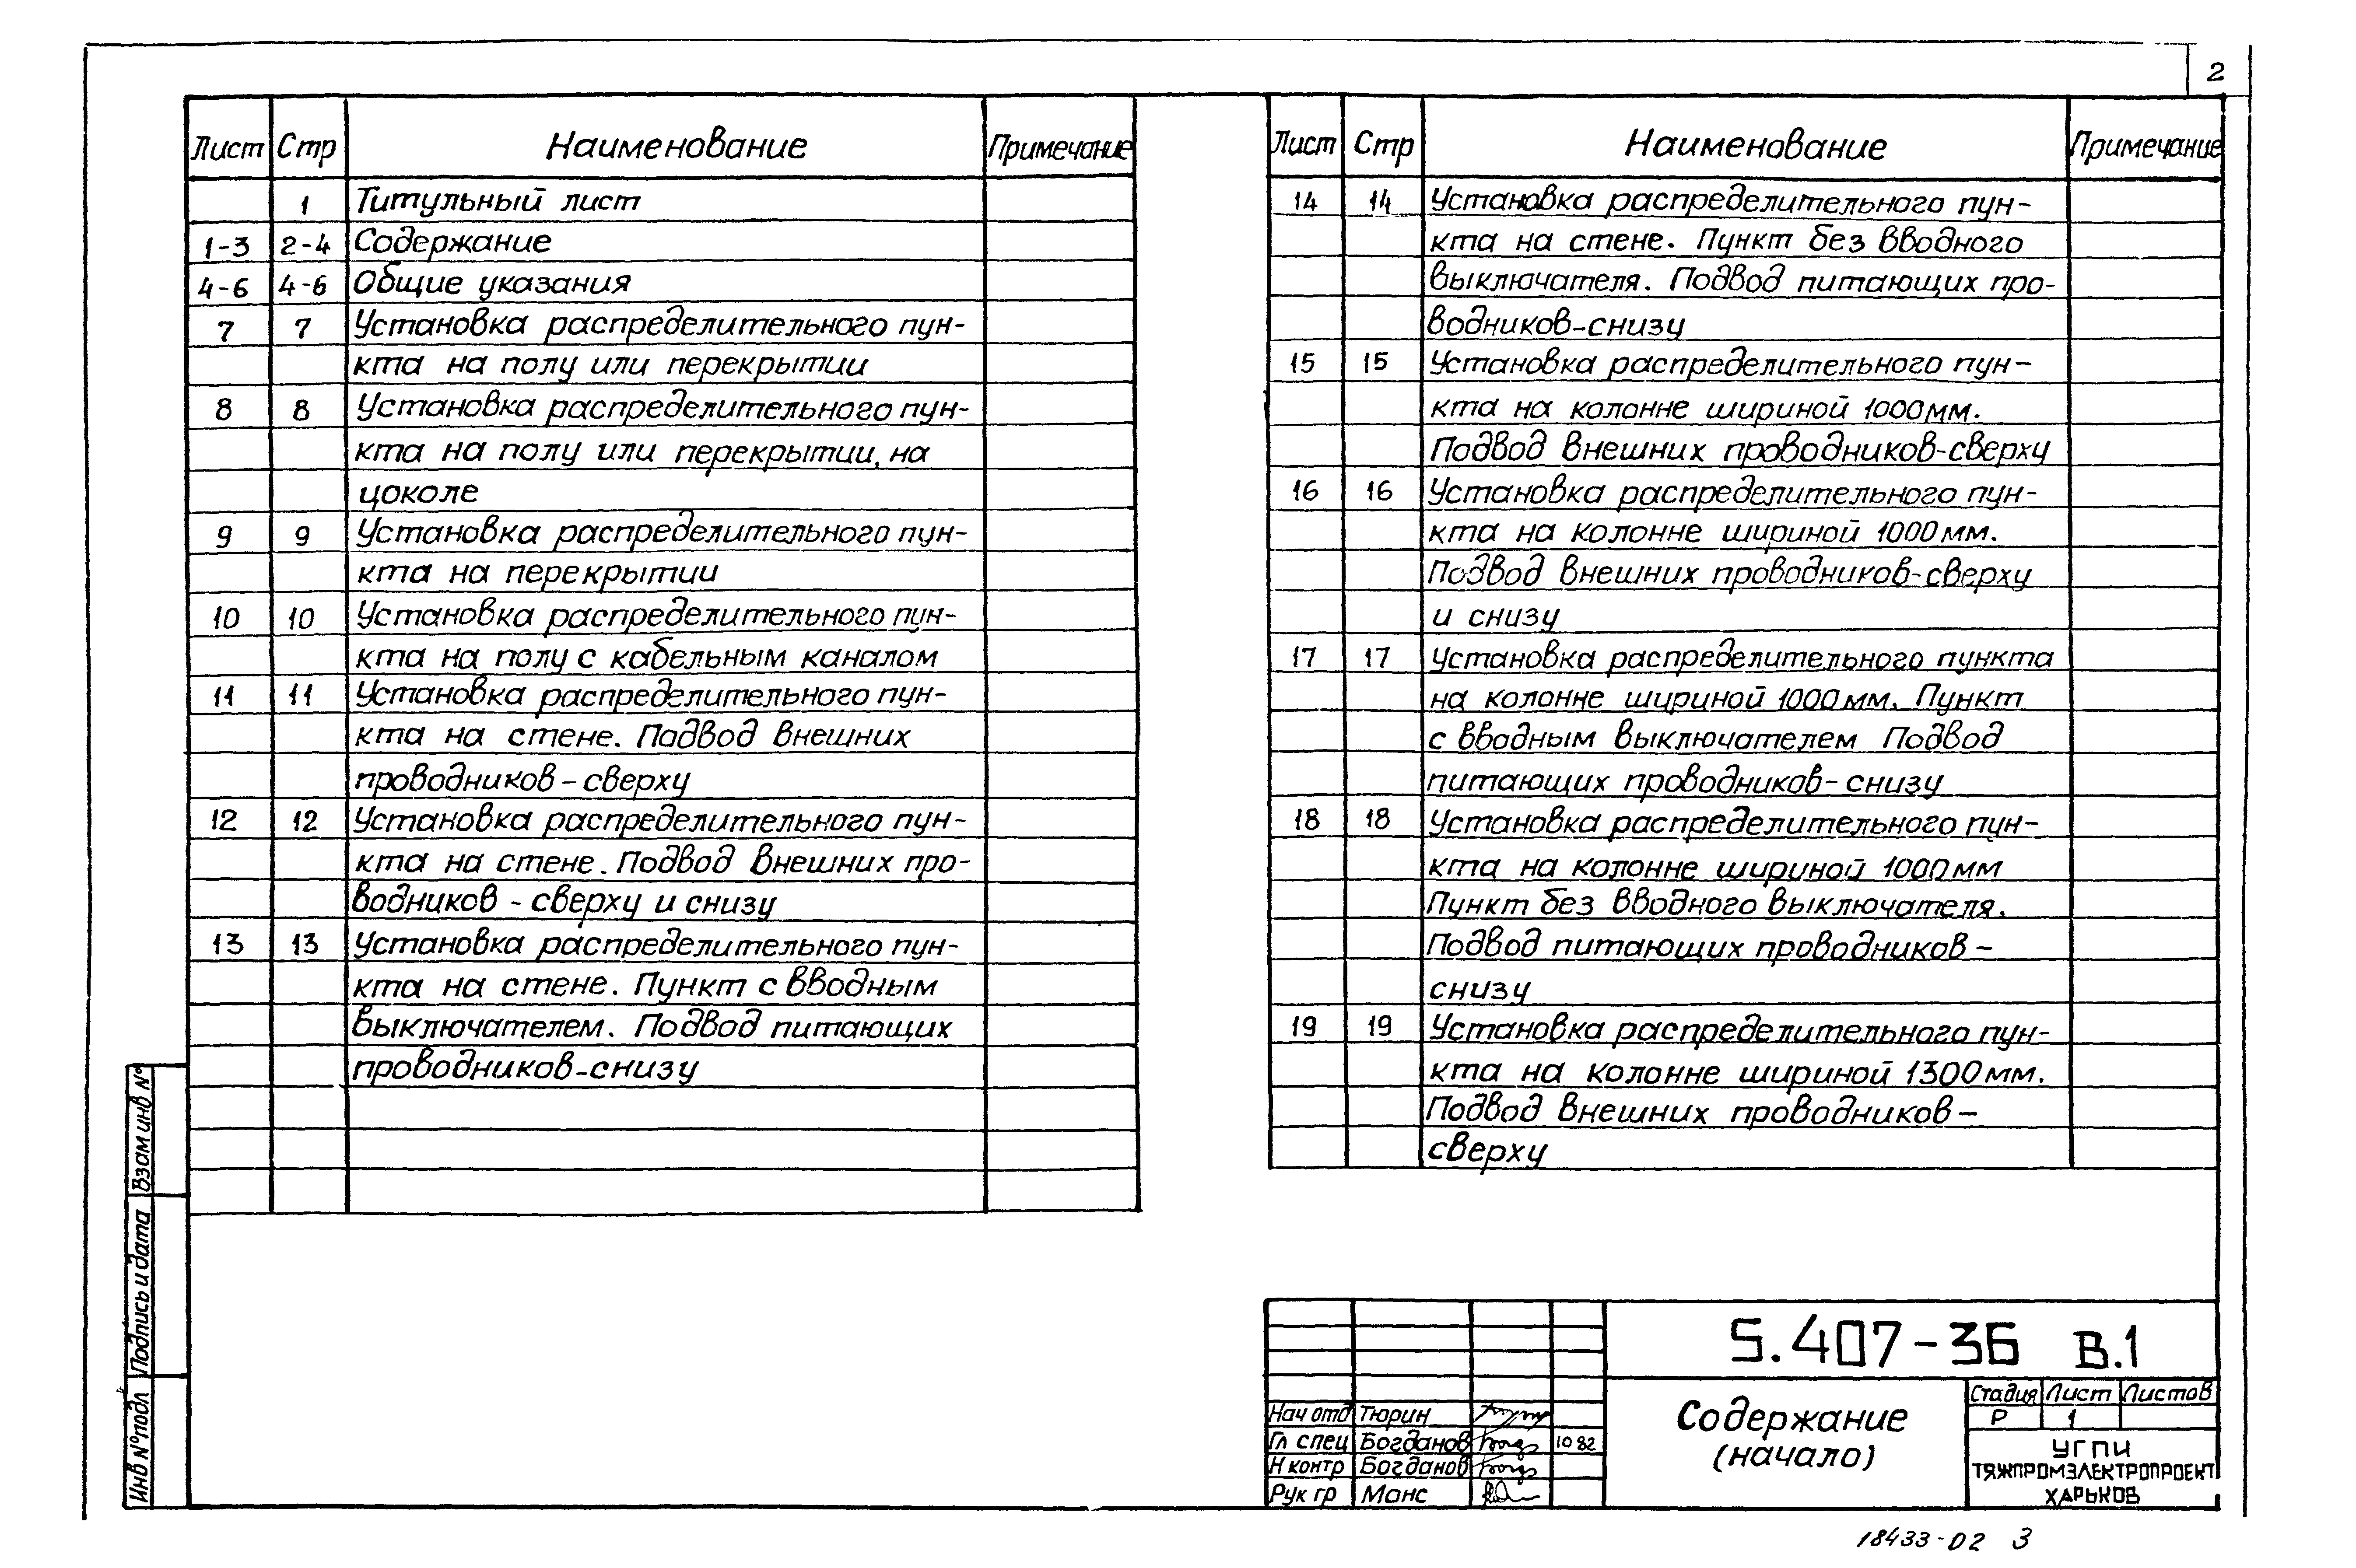 2
Лист Стр Наименование Примечание
1 Титульный лист
1-3 2-4 Содержание
4-6 4-6 Общие указания
7 7 Установка распределительного пун-
кта на полу или перекрытии
8 8 Установка распределительного пун-
кта на полу или перекрытии, на
цоколе
9 9 Установка распределительного пун-
кта на перекрытии
10 10 Установка распределительного пун-
кта на полу с кабельным каналом
11 11 Установка распределительного пун-
кта на стене. Подвод внешних
проводников-сверху
12 12 Установка распределительного пун-
кта на стене. Подвод внешних про-
водников - сверху и снизу
13 13 Установка распределительного пун-
кта на стене. Пункт с вводным
выключателем. Подвод питающих
проводников-снизу
Лист Стр Наименование Примечание
14 14 Установка распределительного пун-
кта на стене. Пункт без вводного
выключателя. Подвод питающих про-
водников-снизу
15 15 Установка распределительного пун-
кта на колонне шириной 1000мм.
Подвод внешних проводников-сверху
16 16 Установка распределительного пун-
кта на колонне шириной 1000мм.
Подвод внешних проводников-сверху
и снизу
17 17 Установка распределительного пункта
на колонне шириной 1000мм. Пункт
с вводным выключателем Подвод
питающих проводников-снизу
18 18 Установка распределительного пун-
кта на колонне шириной 1000мм
Пункт без вводного выключателя.
Подвод питающих проводников-
снизу
19 19 Установка распределительного пун-
кта на колонне шириной 1300мм.
Подвод внешних проводников-
сверху
Взам инв №
Подпись и дата
Инв № подл
5.407-36 В.1
Нач отд Тюрин
Гл спец Богданов 10 82
Н контр Богданов
Рук гр Манс
Содержание
(начало)
Стадия Лист Листов
Р 1
УГПИ
ТЯЖПРОМЭЛЕКТРОПРОЕКТ
ХАРЬКОВ
18433-02 3